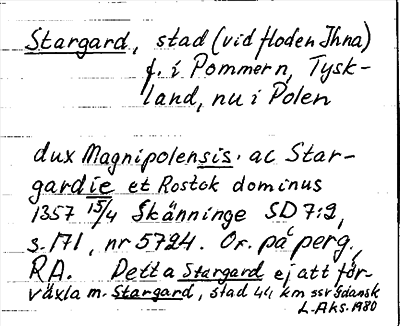 Stargard, stad (vid floden Ihna)
f. i Pommern, Tysk-
land, nu i Polen
dux Magnipolensis ac Star-
gardie et Rostok dominus
1357 15/4 Skänninge SD 7:2,
s. 171, nr 5724. Or. på perg.,
RA. Detta Stargard ej att för-
växla m. Stargard, stad 44 km ssv Gdansk
L. Aks. 1980